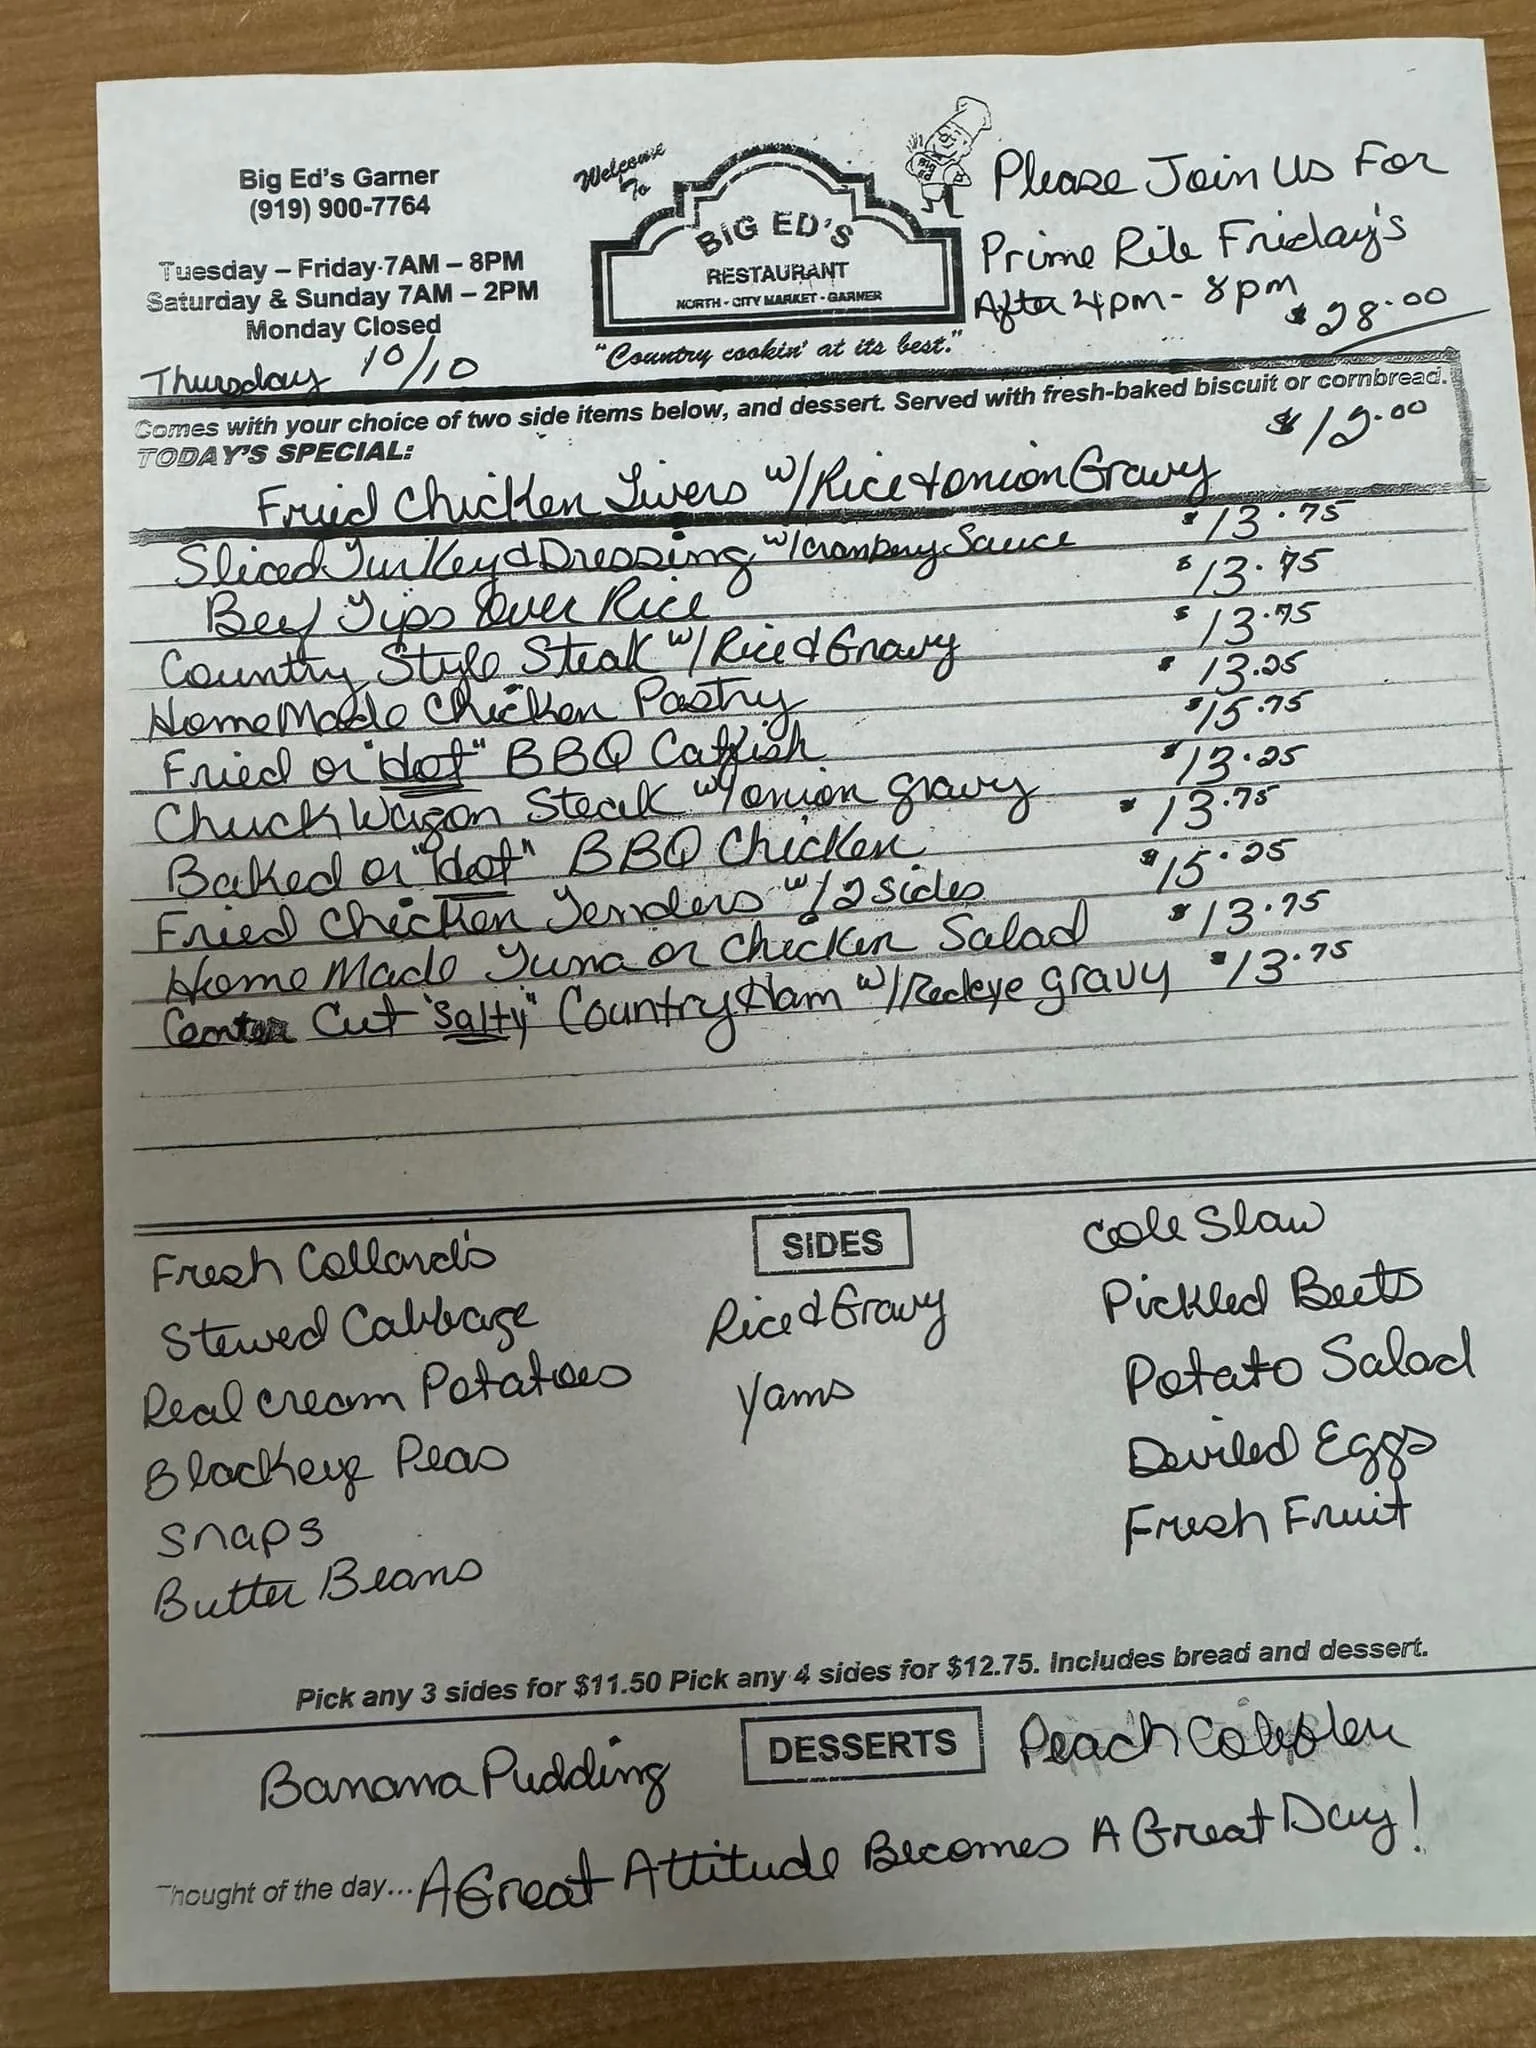 Big Ed's Garner
(919) 900-7764
Tuesday – Friday 7AM – 8PM
Saturday & Sunday 7AM – 2PM
Monday Closed
Thursday 10/10
Welcome
To
BIG ED'S
RESTAURANT
NORTH - CITY MARKET - GARNER
"Country cookin' at its best."
BIG
ED
Please Join Us For
Prime Rib Friday's
After 4pm - 8pm
$28.00
Comes with your choice of two side items below, and dessert. Served with fresh-baked biscuit or cornbread.
TODAY'S SPECIAL: $12.00
Fried Chicken Livers w/Rice & Onion Gravy
Sliced Turkey & Dressing w/cranberry Sauce $13.75
Beef Tips Over Rice $13.75
Country Style Steak w/Rice & Gravy $13.75
HomeMade Chicken Pastry $13.25
Fried or "Hot" BBQ Catfish $15.75
Chuck Wagon Steak w/onion gravy $13.25
Baked or "Hot" BBQ Chicken $13.75
Fried Chicken Tenders w/2 sides $15.25
Home Made Tuna or Chicken Salad $13.75
Center Cut "Salty" Country Ham w/Redeye gravy $13.75
SIDES
Fresh Collard's
Stewed Cabbage
Real cream Potatoes
Blackeye Peas
Snaps
Butter Beans
Rice & Gravy
Yams
Cole Slaw
Pickled Beets
Potato Salad
Deviled Eggs
Fresh Fruit
Pick any 3 sides for $11.50 Pick any 4 sides for $12.75. Includes bread and dessert.
DESSERTS
Banana Pudding
Peach Cobbler
Thought of the day... A Great Attitude Becomes A Great Day!